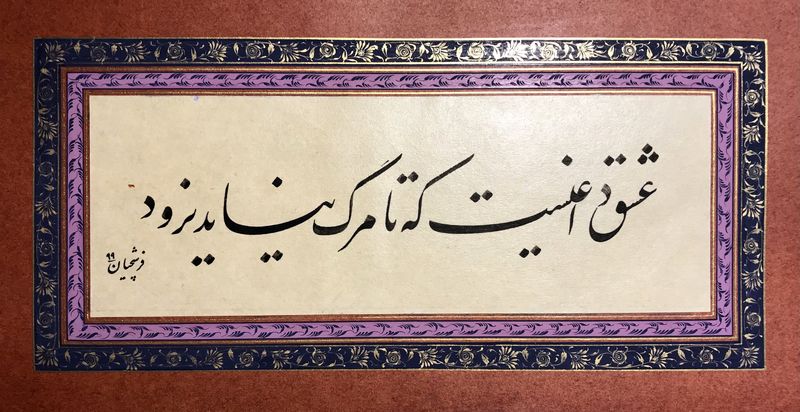 عشق داغیست که تا مرگ نیاید نرود
فرشچیان ۹۹